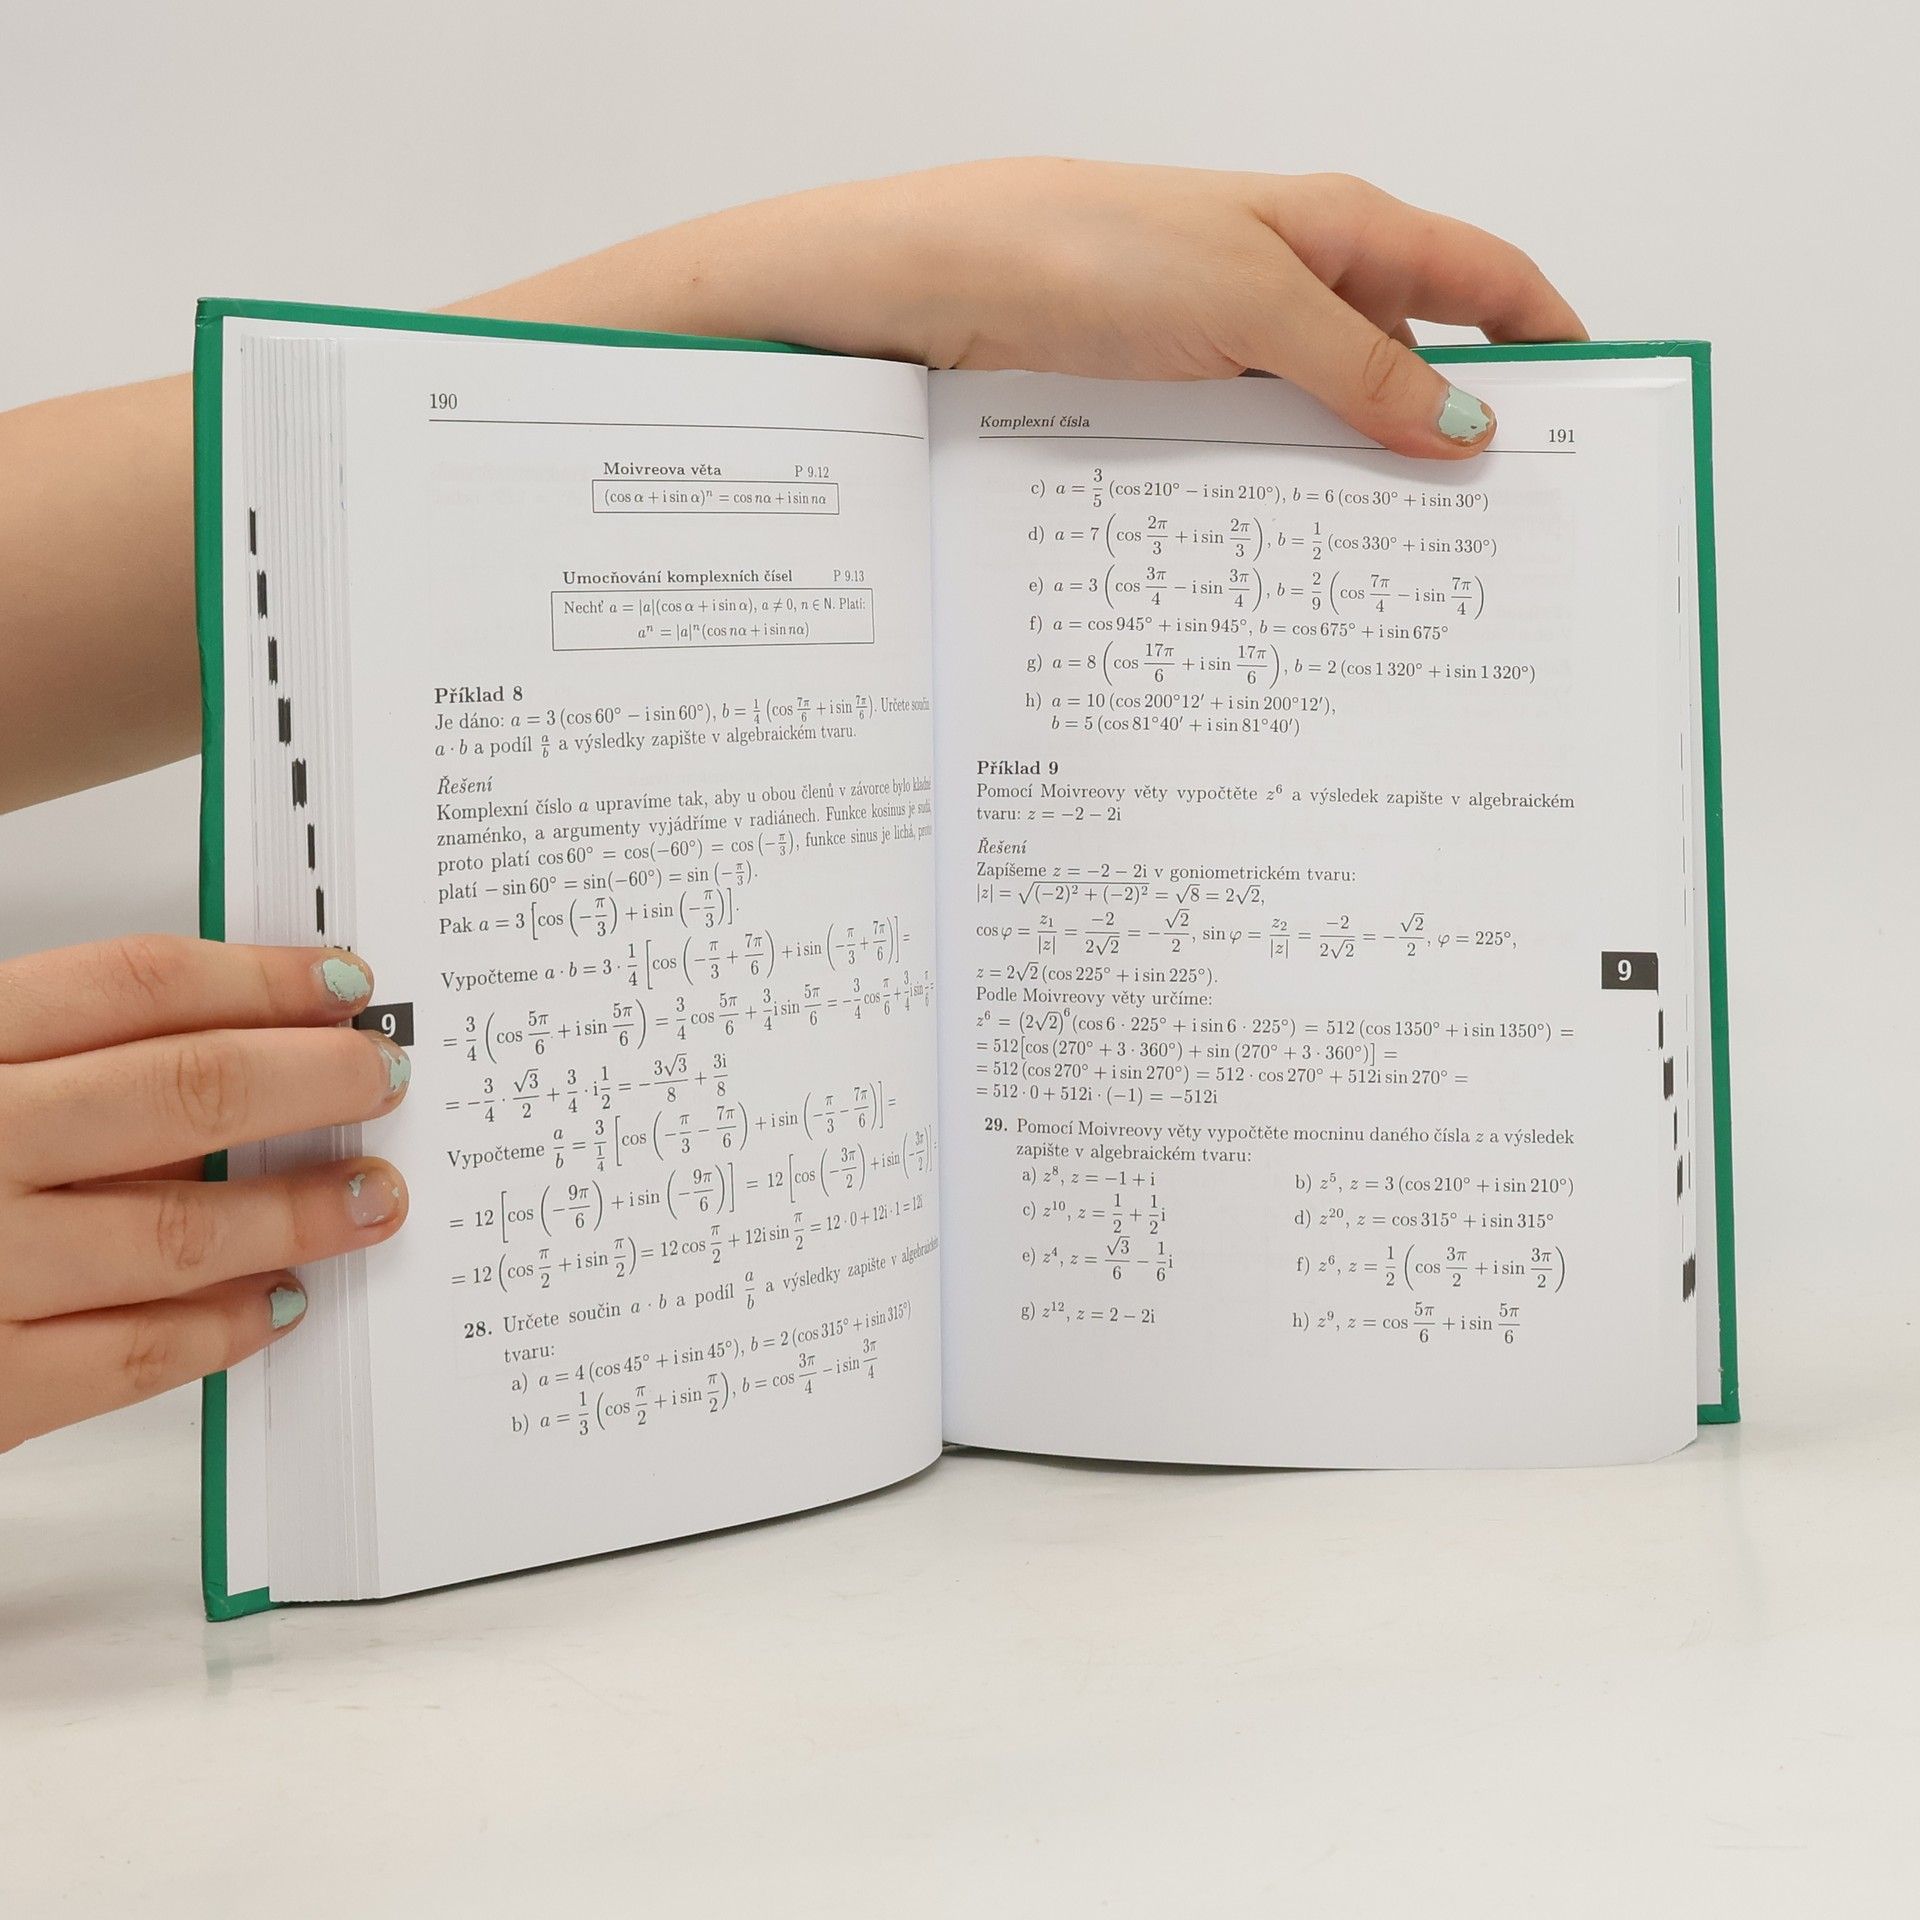 190
Moivreova věta P 9.12
(cos α + i sin α)ⁿ = cos nα + i sin nα
Umocňování komplexních čísel P 9.13
Nechť a = |a|(cos α + i sin α), a ≠ 0, n ∈ N. Platí:
aⁿ = |a|ⁿ(cos nα + i sin nα)
Příklad 8
Je dáno: a = 3 (cos 60° − i sin 60°), b = 1/4 (cos 7π/6 + i sin 7π/6). Určete součin
a · b a podíl a/b a výsledky zapište v algebraickém tvaru.
Řešení
Komplexní číslo a upravíme tak, aby u obou členů v závorce bylo kladné
znaménko, a argumenty vyjádříme v radiánech. Funkce kosinus je sudá,
proto platí cos 60° = cos(−60°) = cos (−π/3), funkce sinus je lichá, proto
platí − sin 60° = sin(−60°) = sin (−π/3).
Pak a = 3 [cos (−π/3) + i sin (−π/3)].
Vypočteme a · b = 3 · 1/4 [cos (−π/3 + 7π/6) + i sin (−π/3 + 7π/6)] =
= 3/4 (cos 5π/6 + i sin 5π/6) = 3/4 cos 5π/6 + 3/4 i sin 5π/6 = −3/4 cos π/6 + 3/4 i sin π/6 =
= −3/4 · √3/2 + 3/4 · i 1/2 = −3√3/8 + 3i/8
Vypočteme a/b = 3/(1/4) [cos (−π/3 − 7π/6) + i sin (−π/3 − 7π/6)] =
= 12 [cos (−9π/6) + i sin (−9π/6)] = 12 [cos (−3π/2) + i sin (−3π/2)] =
= 12 (cos π/2 + i sin π/2) = 12 cos π/2 + 12i sin π/2 = 12 · 0 + 12i · 1 = 12i
28. Určete součin a · b a podíl a/b a výsledky zapište v algebraickém
tvaru:
a) a = 4 (cos 45° + i sin 45°), b = 2 (cos 315° + i sin 315°)
b) a = 1/3 (cos π/2 + i sin π/2), b = cos 3π/4 − i sin 3π/4
9
Komplexní čísla 191
c) a = 3/5 (cos 210° − i sin 210°), b = 6 (cos 30° + i sin 30°)
d) a = 7 (cos 2π/3 + i sin 2π/3), b = 1/2 (cos 330° + i sin 330°)
e) a = 3 (cos 3π/4 − i sin 3π/4), b = 2/9 (cos 7π/4 − i sin 7π/4)
f) a = cos 945° + i sin 945°, b = cos 675° + i sin 675°
g) a = 8 (cos 17π/6 + i sin 17π/6), b = 2 (cos 1 320° + i sin 1 320°)
h) a = 10 (cos 200°12′ + i sin 200°12′),
b = 5 (cos 81°40′ + i sin 81°40′)
Příklad 9
Pomocí Moivreovy věty vypočtěte z⁶ a výsledek zapište v algebraickém
tvaru: z = −2 − 2i
Řešení
Zapíšeme z = −2 − 2i v goniometrickém tvaru:
|z| = √((−2)² + (−2)²) = √8 = 2√2,
cos φ = z₁/|z| = −2/2√2 = −√2/2, sin φ = z₂/|z| = −2/2√2 = −√2/2, φ = 225°,
z = 2√2 (cos 225° + i sin 225°).
Podle Moivreovy věty určíme:
z⁶ = (2√2)⁶ (cos 6 · 225° + i sin 6 · 225°) = 512 (cos 1350° + i sin 1350°) =
= 512 [cos (270° + 3 · 360°) + sin (270° + 3 · 360°)] =
= 512 (cos 270° + i sin 270°) = 512 · cos 270° + 512i sin 270° =
= 512 · 0 + 512i · (−1) = −512i
29. Pomocí Moivreovy věty vypočtěte mocninu daného čísla z a výsledek
zapište v algebraickém tvaru:
a) z⁸, z = −1 + i b) z⁵, z = 3 (cos 210° + i sin 210°)
c) z¹⁰, z = 1/2 + 1/2 i d) z²⁰, z = cos 315° + i sin 315°
e) z⁴, z = √3/6 − 1/6 i f) z⁶, z = 1/2 (cos 3π/2 + i sin 3π/2)
g) z¹², z = 2 − 2i h) z⁹, z = cos 5π/6 + i sin 5π/6
9